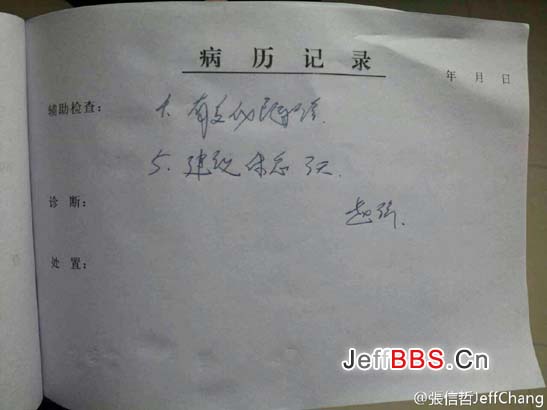 病历记录
年 月 日
辅助检查：
5. 建议休息 3天.
诊 断：
处 置：
JeffBBS.Cn
@張信哲JeffChang